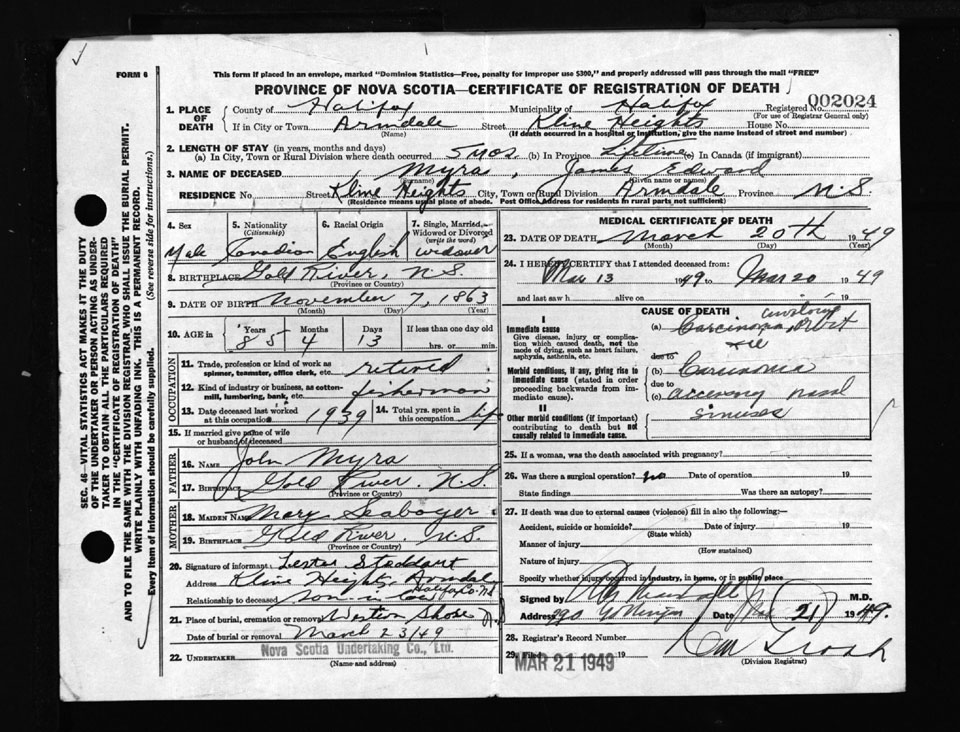 FORM 6
This form if placed in an envelope, marked "Dominion Statistics—Free, penalty for improper use $300," and properly addressed will pass through the mail "FREE"
PROVINCE OF NOVA SCOTIA—CERTIFICATE OF REGISTRATION OF DEATH
1. PLACE OF DEATH
County of Halifax Municipality of Halifax Registered No. 002024
(For use of Registrar General only)
If in City or Town Armdale Street Kline Heights House No.
(Name) (If death occurred in a hospital or institution, give the name instead of street and number)
2. LENGTH OF STAY (in years, months and days)
(a) In City, Town or Rural Division where death occurred 5 mos (b) In Province Lifetime (c) in Canada (if immigrant)
3. NAME OF DECEASED Myra, James Edward
(Surname) (Given name or names)
RESIDENCE No. Street Kline Heights City, Town or Rural Division Armdale Province N.S.
(Residence means usual place of abode. Post Office Address for residents in rural parts not sufficient)
4. Sex Male
5. Nationality (Citizenship) Canadian
6. Racial Origin English
7. Single, Married, Widowed or Divorced (write the word) widower
8. BIRTHPLACE Gold River, N.S.
(Province or Country)
9. DATE OF BIRTH November 7, 1863
(Month) (Day) (Year)
10. AGE in Years 85 Months 4 Days 13 If less than one day old
hrs. or min.
OCCUPATION
11. Trade, profession or kind of work as spinner, teamster, office clerk, etc. retired
12. Kind of industry or business, as cotton-mill, lumbering, bank, etc. fisherman
13. Date deceased last worked at this occupation 1939
14. Total yrs. spent in this occupation life
15. If married give name of wife or husband of deceased
FATHER
16. NAME John Myra
17. BIRTHPLACE Gold River. N.S.
(Province or Country)
MOTHER
18. MAIDEN NAME Mary Seaboyer
19. BIRTHPLACE Gold River. N.S.
(Province or Country)
20. Signature of informant Lester Stoddart
Address Kline Heights, Armdale
Halifax Co. N.S.
Relationship to deceased son-in-law
21. Place of burial, cremation or removal Western Shore N.S.
Date of burial or removal March 23/49
22. UNDERTAKER Nova Scotia Undertaking Co., Ltd.
(Name and address)
MEDICAL CERTIFICATE OF DEATH
23. DATE OF DEATH March 20th 1949
(Month) (Day) (Year)
24. I HEREBY CERTIFY that I attended deceased from:
Mar 13 1949 to Mar 20 1949
and last saw h alive on 19
CAUSE OF DEATH
I
Immediate cause
Give disease, injury or complication which caused death, not the mode of dying, such as heart failure, asphyxia, asthenia, etc.
Morbid conditions, if any, giving rise to immediate cause (stated in order proceeding backwards from immediate cause).
II
Other morbid conditions (if important) contributing to death but not causally related to immediate cause.
(a) Carcinoma Orbit
due to
(b) Carcinoma
due to
(c) accessory nasal
sinuses
25. If a woman, was the death associated with pregnancy?
26. Was there a surgical operation? no Date of operation 19
State findings Was there an autopsy?
27. If death was due to external causes (violence) fill in also the following:—
Accident, suicide or homicide? Date of injury 19
(State which)
Manner of injury
(How sustained)
Nature of injury
Specify whether injury occurred in industry, in home, or in public place
Signed by M.D.
Address Date Mar 21 1949.
28. Registrar's Record Number
29. Filed MAR 21 1949 19
(Division Registrar)
SEC. 46—VITAL STATISTICS ACT MAKES IT THE DUTY
OF THE UNDERTAKER OR PERSON ACTING AS UNDERTAKER TO OBTAIN ALL THE PARTICULARS REQUIRED
IN THE "CERTIFICATE OF REGISTRATION OF DEATH"
AND TO FILE THE SAME WITH THE DIVISION REGISTRAR WHO SHALL ISSUE THE BURIAL PERMIT.
WRITE PLAINLY WITH UNFADING INK. THIS IS A PERMANENT RECORD.
Every item of information should be carefully supplied. (See reverse side for instructions.)